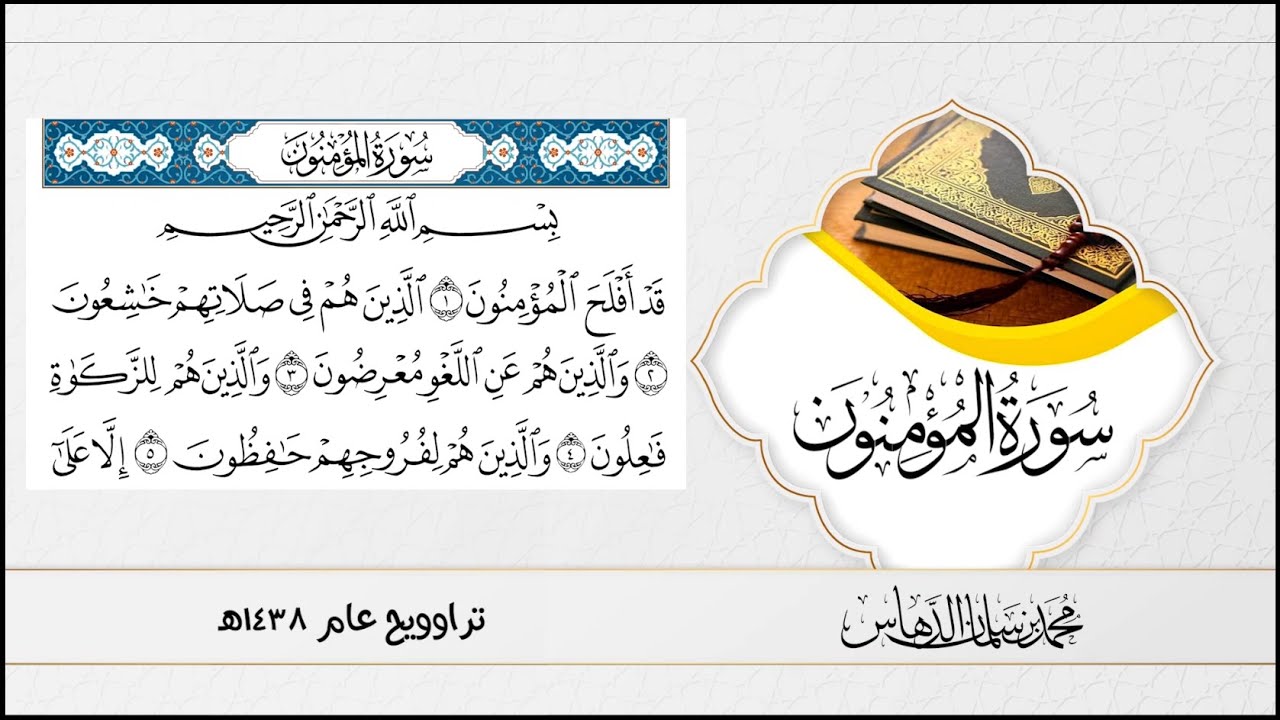 سُورَةُ المُؤْمِنُون
بِسْمِ ٱللَّهِ ٱلرَّحْمَٰنِ ٱلرَّحِيمِ
قَدْ أَفْلَحَ ٱلْمُؤْمِنُونَ ١ ٱلَّذِينَ هُمْ فِي صَلَاتِهِمْ خَٰشِعُونَ
٢ وَٱلَّذِينَ هُمْ عَنِ ٱللَّغْوِ مُعْرِضُونَ ٣ وَٱلَّذِينَ هُمْ لِلزَّكَوٰةِ
فَٰعِلُونَ ٤ وَٱلَّذِينَ هُمْ لِفُرُوجِهِمْ حَٰفِظُونَ ٥ إِلَّا عَلَىٰٓ
سُورَةُ المُؤْمِنُون
محمد بن سلمان الدَّهاس
تراوويح عام ١٤٣٨هـ